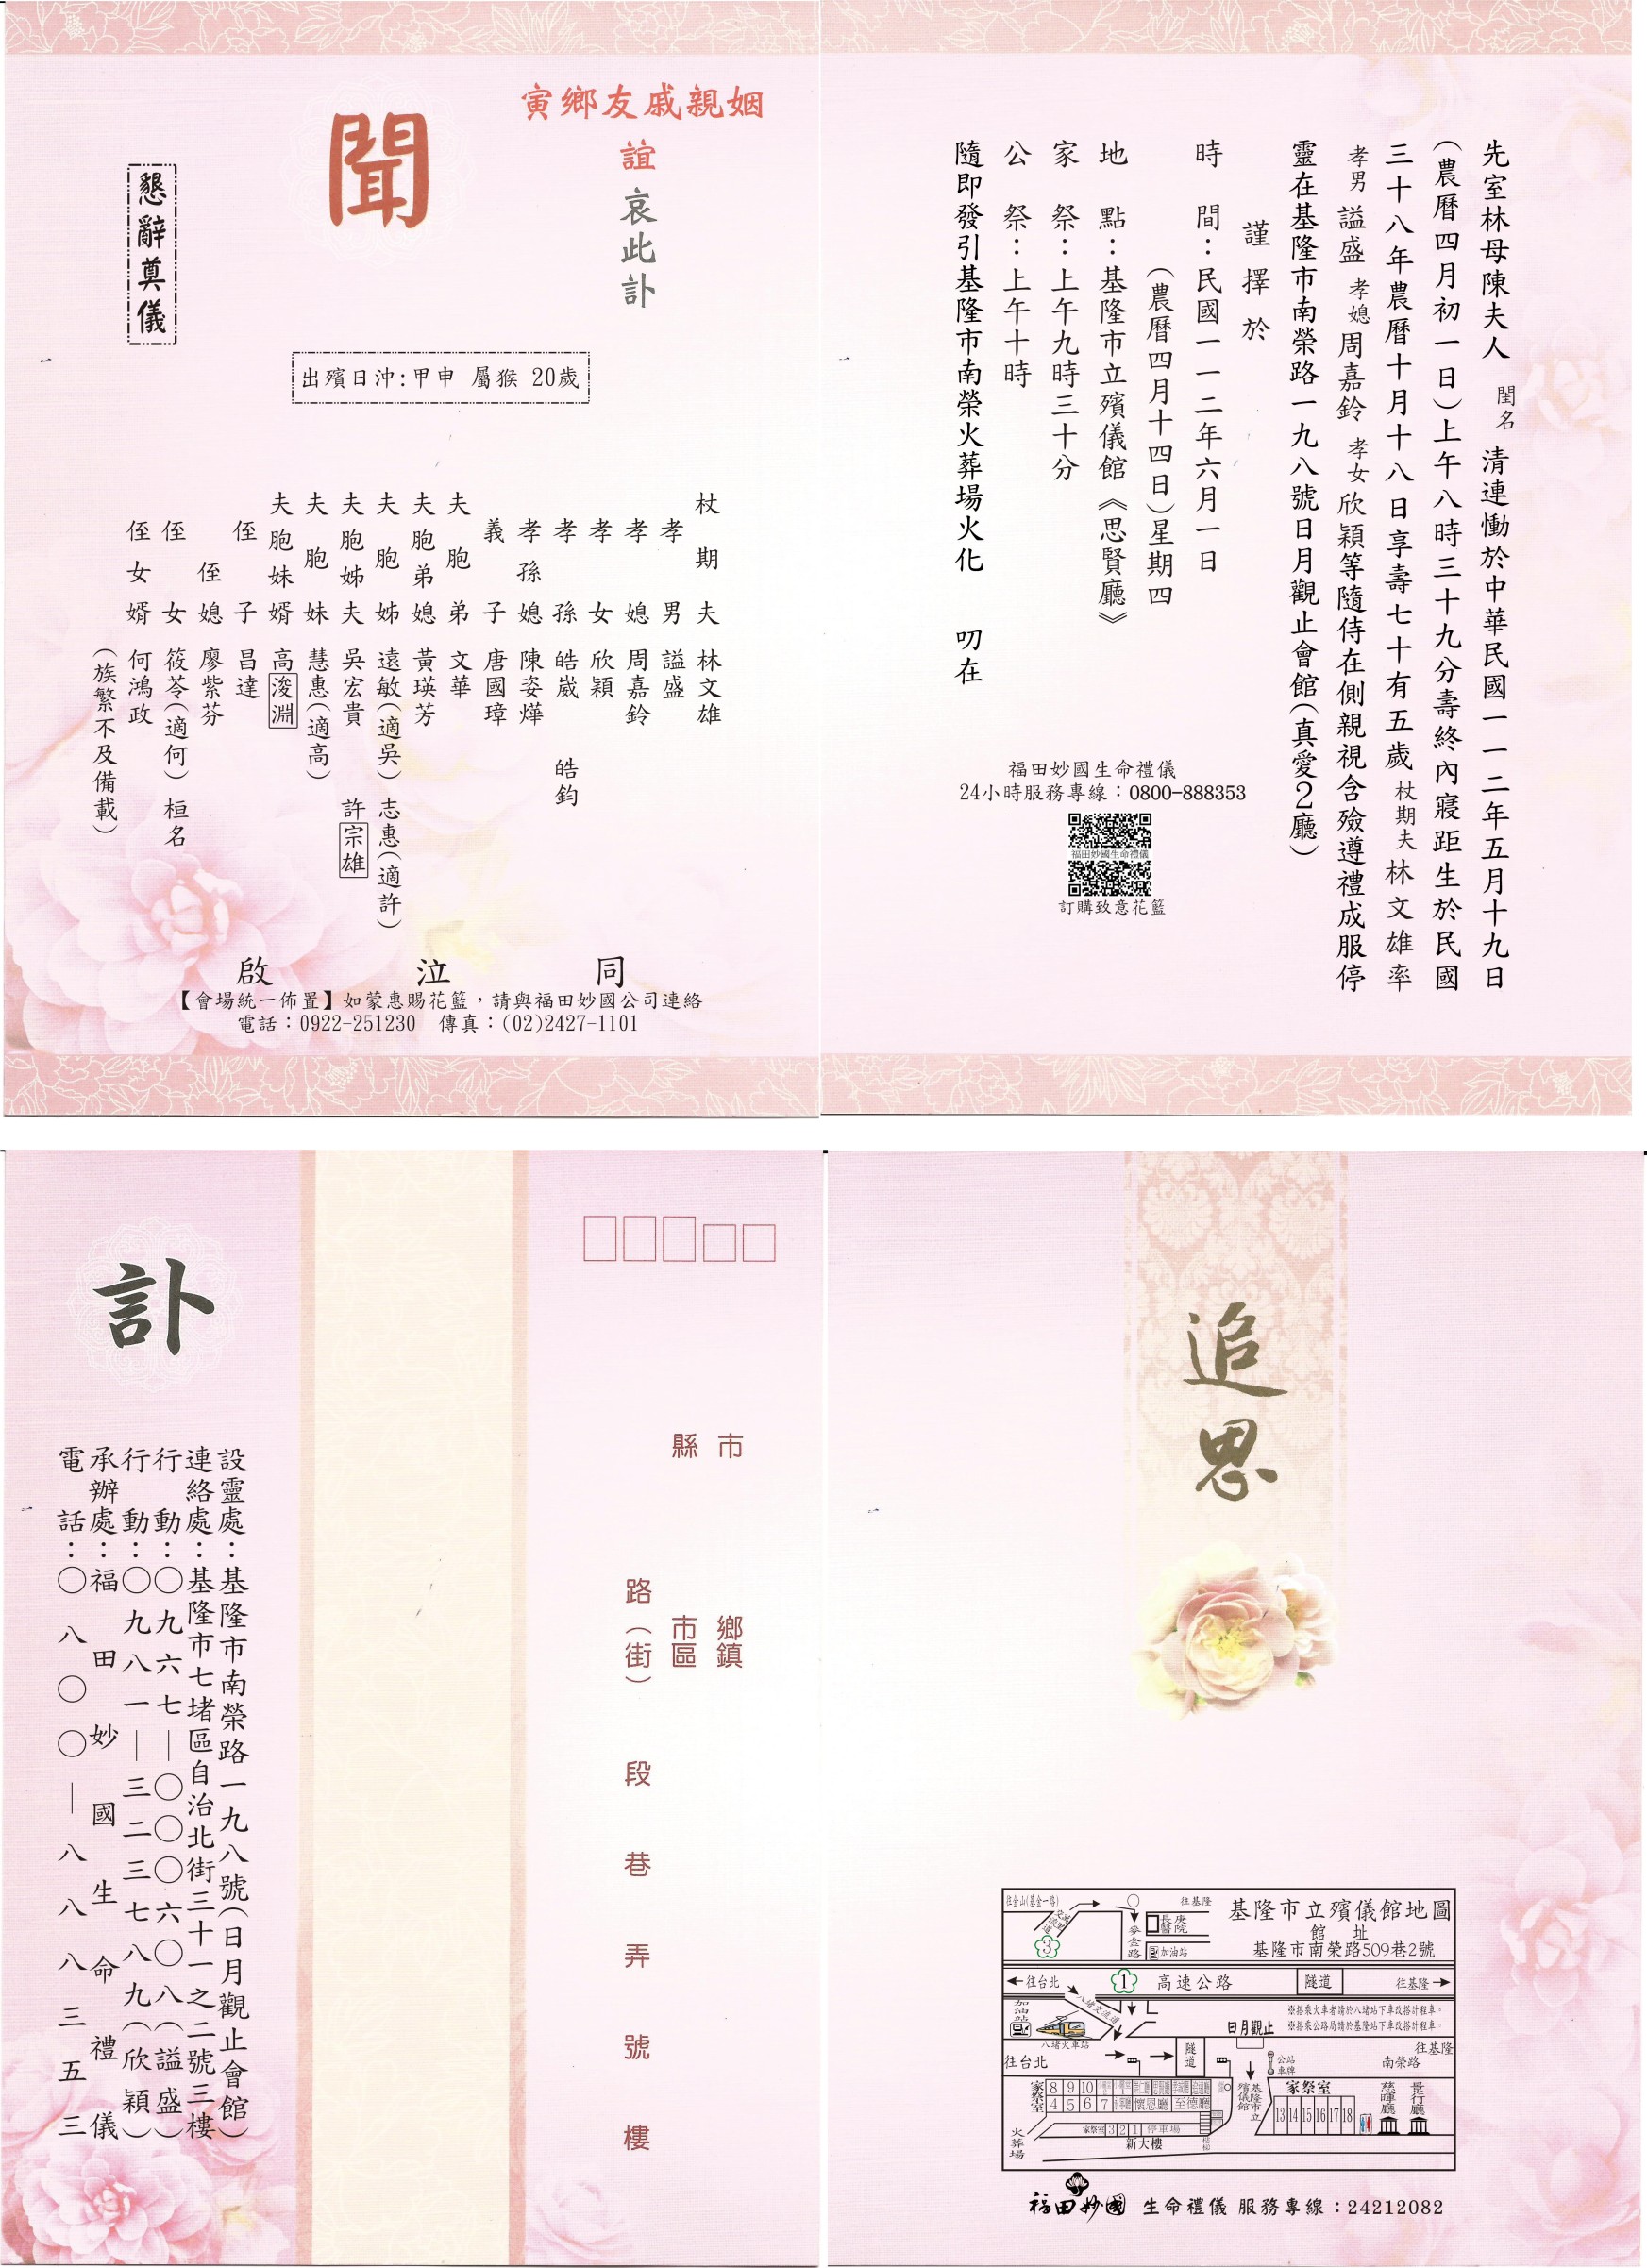 先室林母陳夫人 閨名 清連慟於中華民國一一二年五月十九日
(農曆四月初一日)上午八時三十九分壽終內寢距生於民國
三十八年農曆十月十八日享壽七十有五歲 杖期夫 林文雄率
孝男 謚盛 孝媳 周嘉鈴 孝女 欣穎等隨侍在側親視含殮遵禮成服停
靈在基隆市南榮路一九八號日月觀止會館(真愛2廳)
謹擇於
時間：民國一一二年六月一日
(農曆四月十四日)星期四
地點：基隆市立殯儀館《思賢廳》
家祭：上午九時三十分
公祭：上午十時
隨即發引基隆市南榮火葬場火化 叨在
福田妙國生命禮儀
24小時服務專線：0800-888353
福田妙國生命禮儀
訂購致意花籃
寅鄉友戚親姻
誼哀此訃
聞
懇辭奠儀
出殯日沖:甲申 屬猴 20歲
杖期夫 林文雄
孝男 謚盛
孝媳 周嘉鈴
孝女 欣穎
孝孫 皓崴 皓鈞
孝孫媳 陳姿燁
義子 唐國璋
夫胞弟 文華
夫胞弟媳 黃瑛芳
夫胞姊 遠敏(適吳) 志惠(適許)
夫胞姊夫 吳宏貴 許宗雄
夫胞妹 慧惠(適高)
夫胞妹婿 高浚淵
侄子 昌達
侄媳 廖紫芬
侄女 筱苓(適何) 桓名
侄女婿 何鴻政
(族繁不及備載)
啟 泣 同
【會場統一佈置】如蒙惠賜花籃，請與福田妙國公司連絡
電話：0922-251230 傳真：(02)2427-1101
訃
設靈處：基隆市南榮路一九八號(日月觀止會館)
連絡處：基隆市七堵區自治北街三十一之二號三樓
行動：〇九六七—〇〇〇六〇八(謚盛)
行動：〇九八一—三二三七八九(欣穎)
承辦處：福田妙國生命禮儀
電話：〇八〇〇—八八八三五三
市
縣
鄉鎮
市區
路(街)
段
巷
弄
號
樓
追思
基隆市立殯儀館地圖
館址
基隆市南榮路509巷2號
往金山(基金一路)
往基隆
交流道
3
麥金路
長庚醫院
加油站
往台北
1
高速公路
隧道
往基隆
八堵交流道
※搭乘火車者請於八堵站下車改搭計程車。
※搭乘公路局請於基隆站下車改搭計程車。
加油站
八堵火車站
日月觀止
往台北
隧道
公站車牌
往基隆
南榮路
家祭室
8 9 10
4 5 6 7 懷恩廳 至德廳
家祭室 3 2 1 停車場
新大樓
火葬場
基隆市立殯儀館
家祭室
13 14 15 16 17 18
慈暉廳
景行廳
福田妙國 生命禮儀 服務專線：24212082